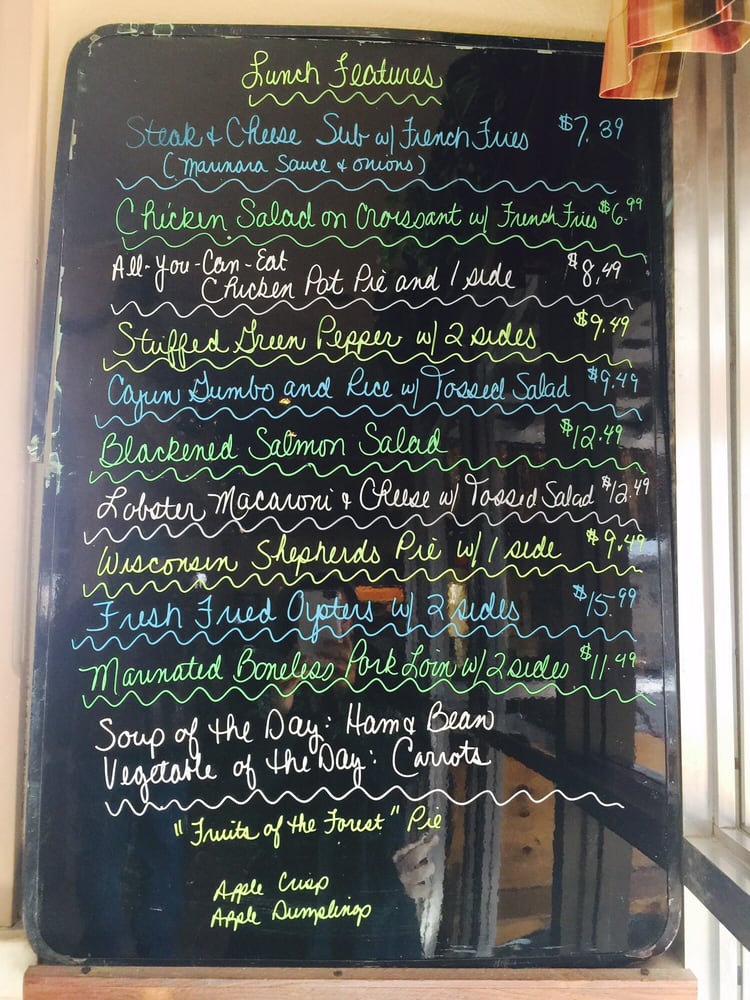 Lunch Features
Steak & Cheese Sub w/ French Fries $7.39
(Marinara Sauce & onions)
Chicken Salad on Croissant w/ French Fries $6.99
All-You-Can-Eat
Chicken Pot Pie and 1 side $8.49
Stuffed Green Pepper w/ 2 sides $9.49
Cajun Gumbo and Rice w/ Tossed Salad $9.49
Blackened Salmon Salad $12.49
Lobster Macaroni & Cheese w/ Tossed Salad $12.49
Wisconsin Shepherds Pie w/ 1 side $9.49
Fresh Fried Oysters w/ 2 sides $15.99
Marinated Boneless Pork Loin w/ 2 sides $11.49
Soup of the Day: Ham & Bean
Vegetable of the Day: Carrots
"Fruits of the Forest" Pie
Apple Crisp
Apple Dumplings